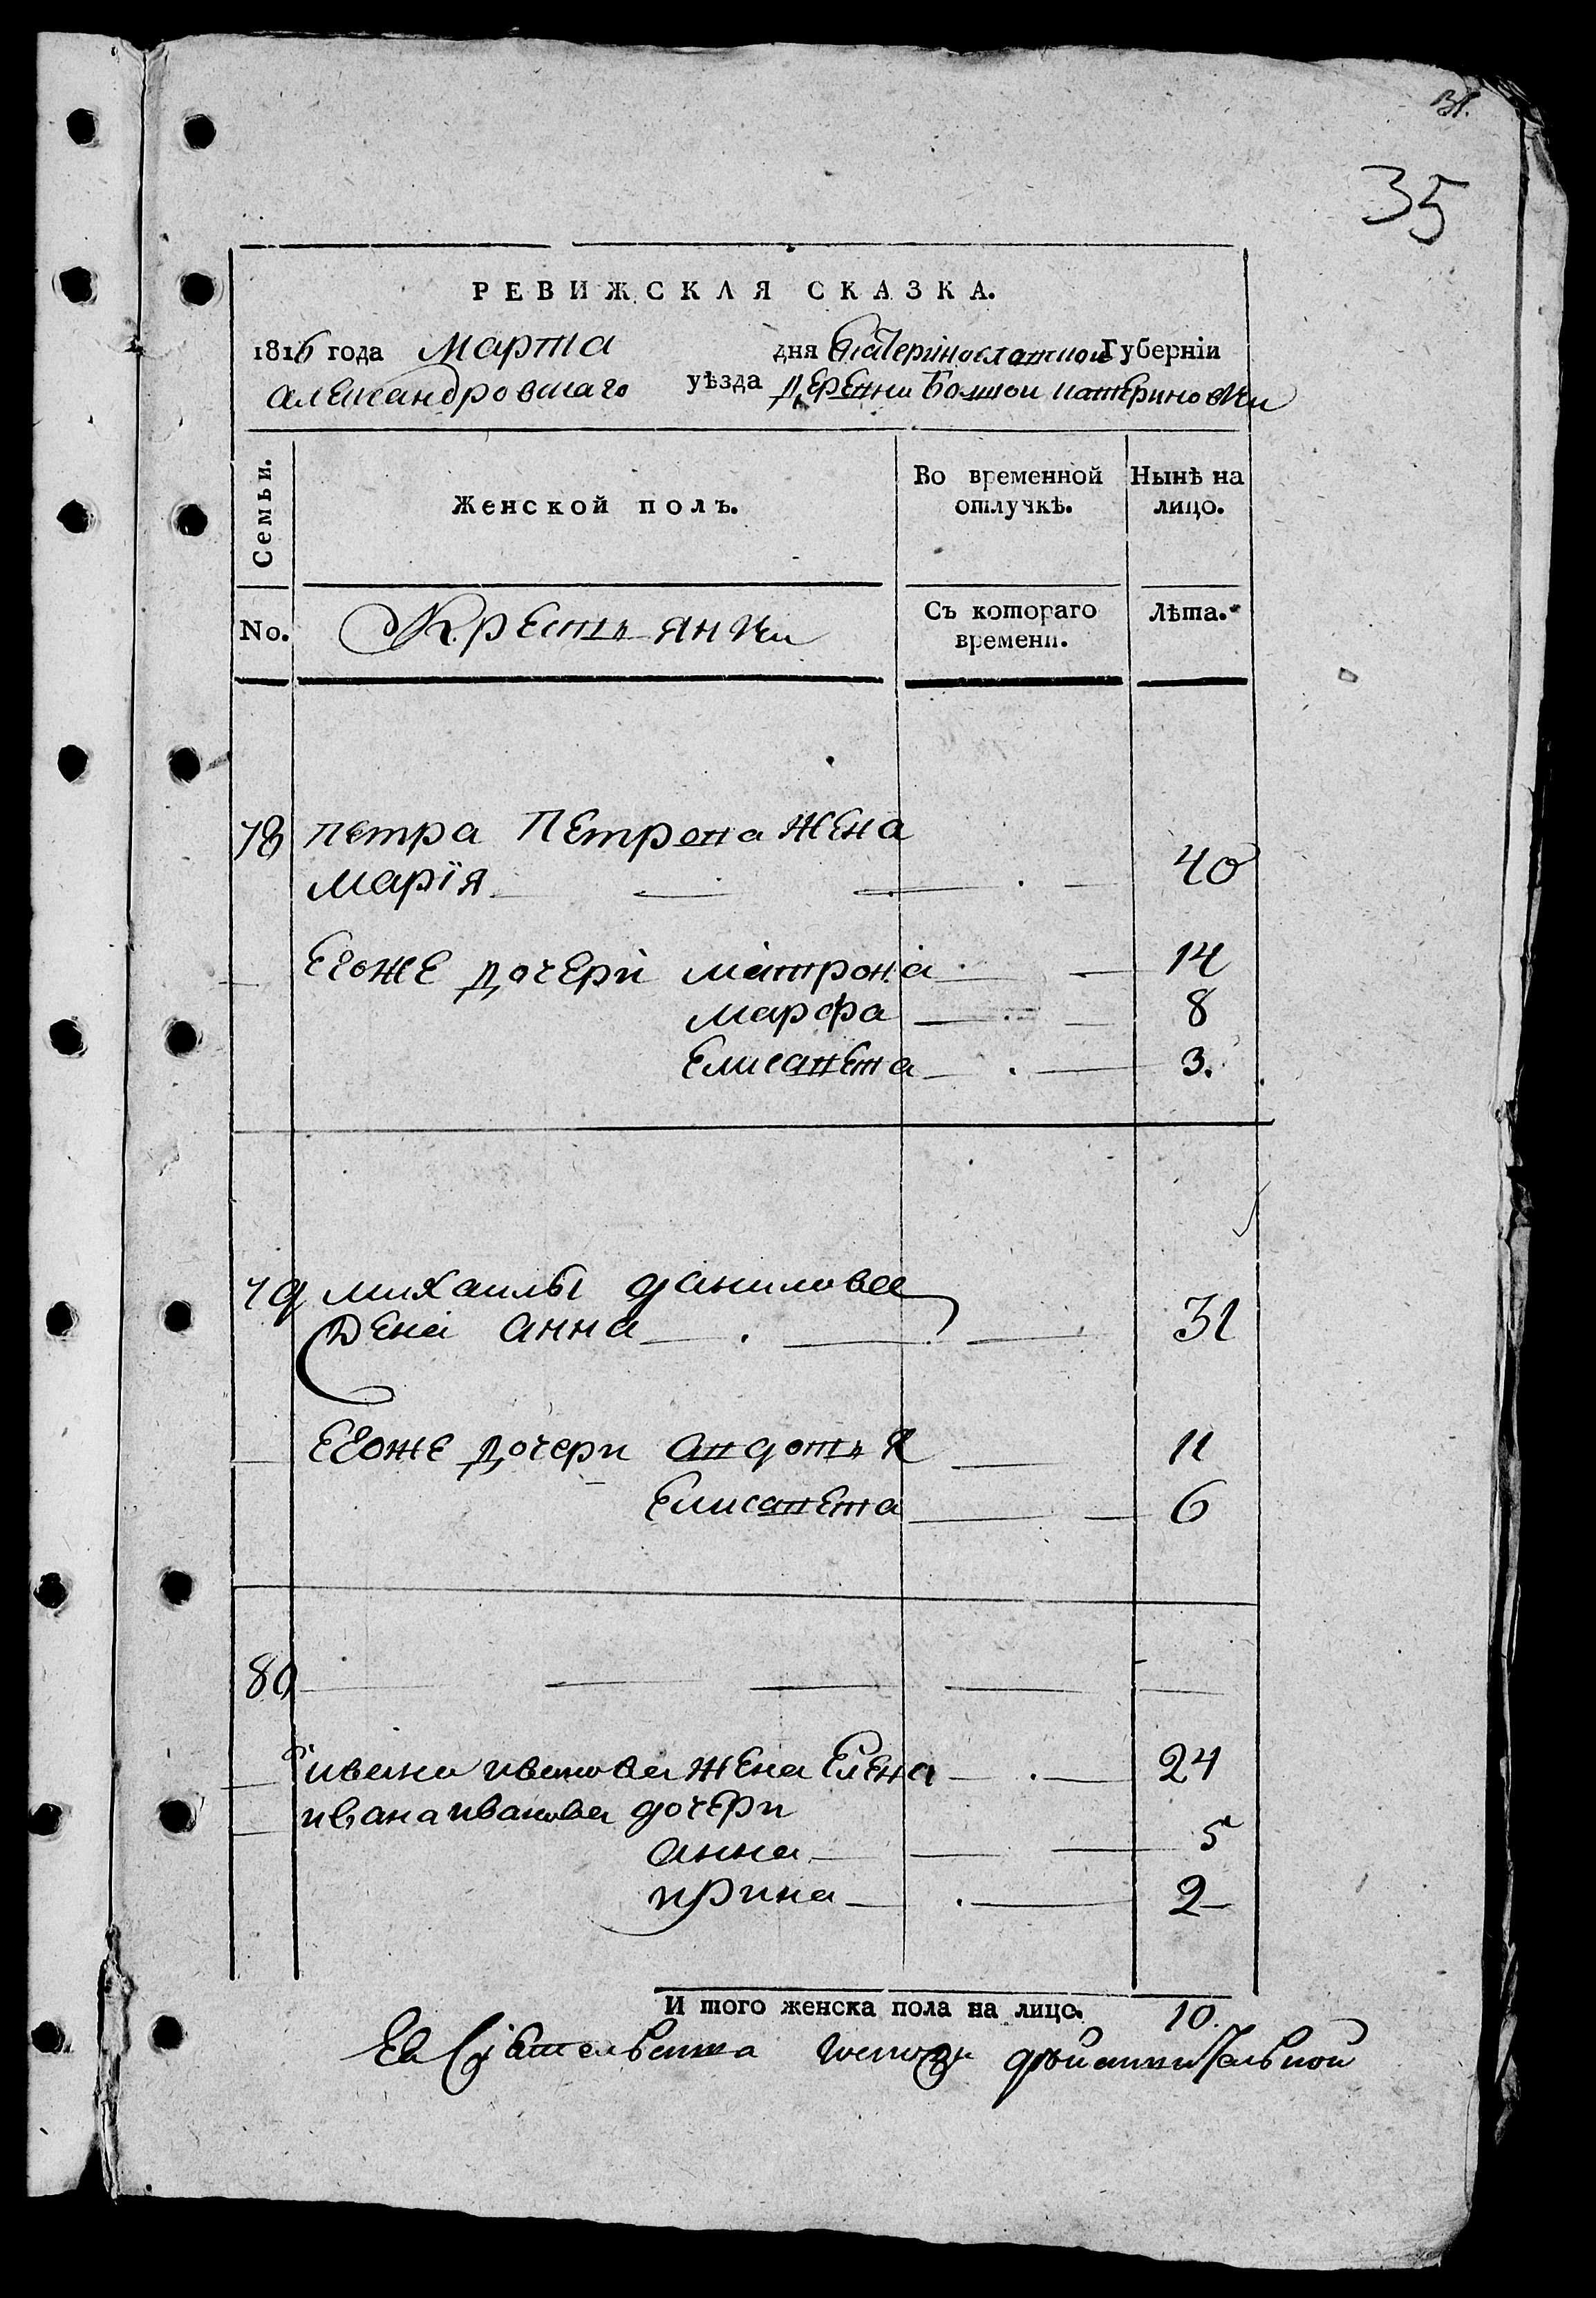 31.
35
РЕВИЖСКАЯ СКАЗКА.
1816 года марта дня Екатеринославской Губерніи
александровскаго уѣзда деревни Болшой катериновки
Семьи. Женской полъ. Во временной отлучкѣ. Нынѣ на лицо.
No. Крестьянки Съ котораго времени. Лѣта.
78 петра Петрова жена
марїя 40
Егоже дочери матрона 14
марфа 8
Елисавета 3.
79 михаилы данилова
жена анна 31
Егоже дочери авдотья 11
Елисавета 6
80
ивана иванова жена Елена 24
ивана иванова дочери
анна 5
ирина 2
И того женска пола на лицо. 10.
Ея Сіятельства